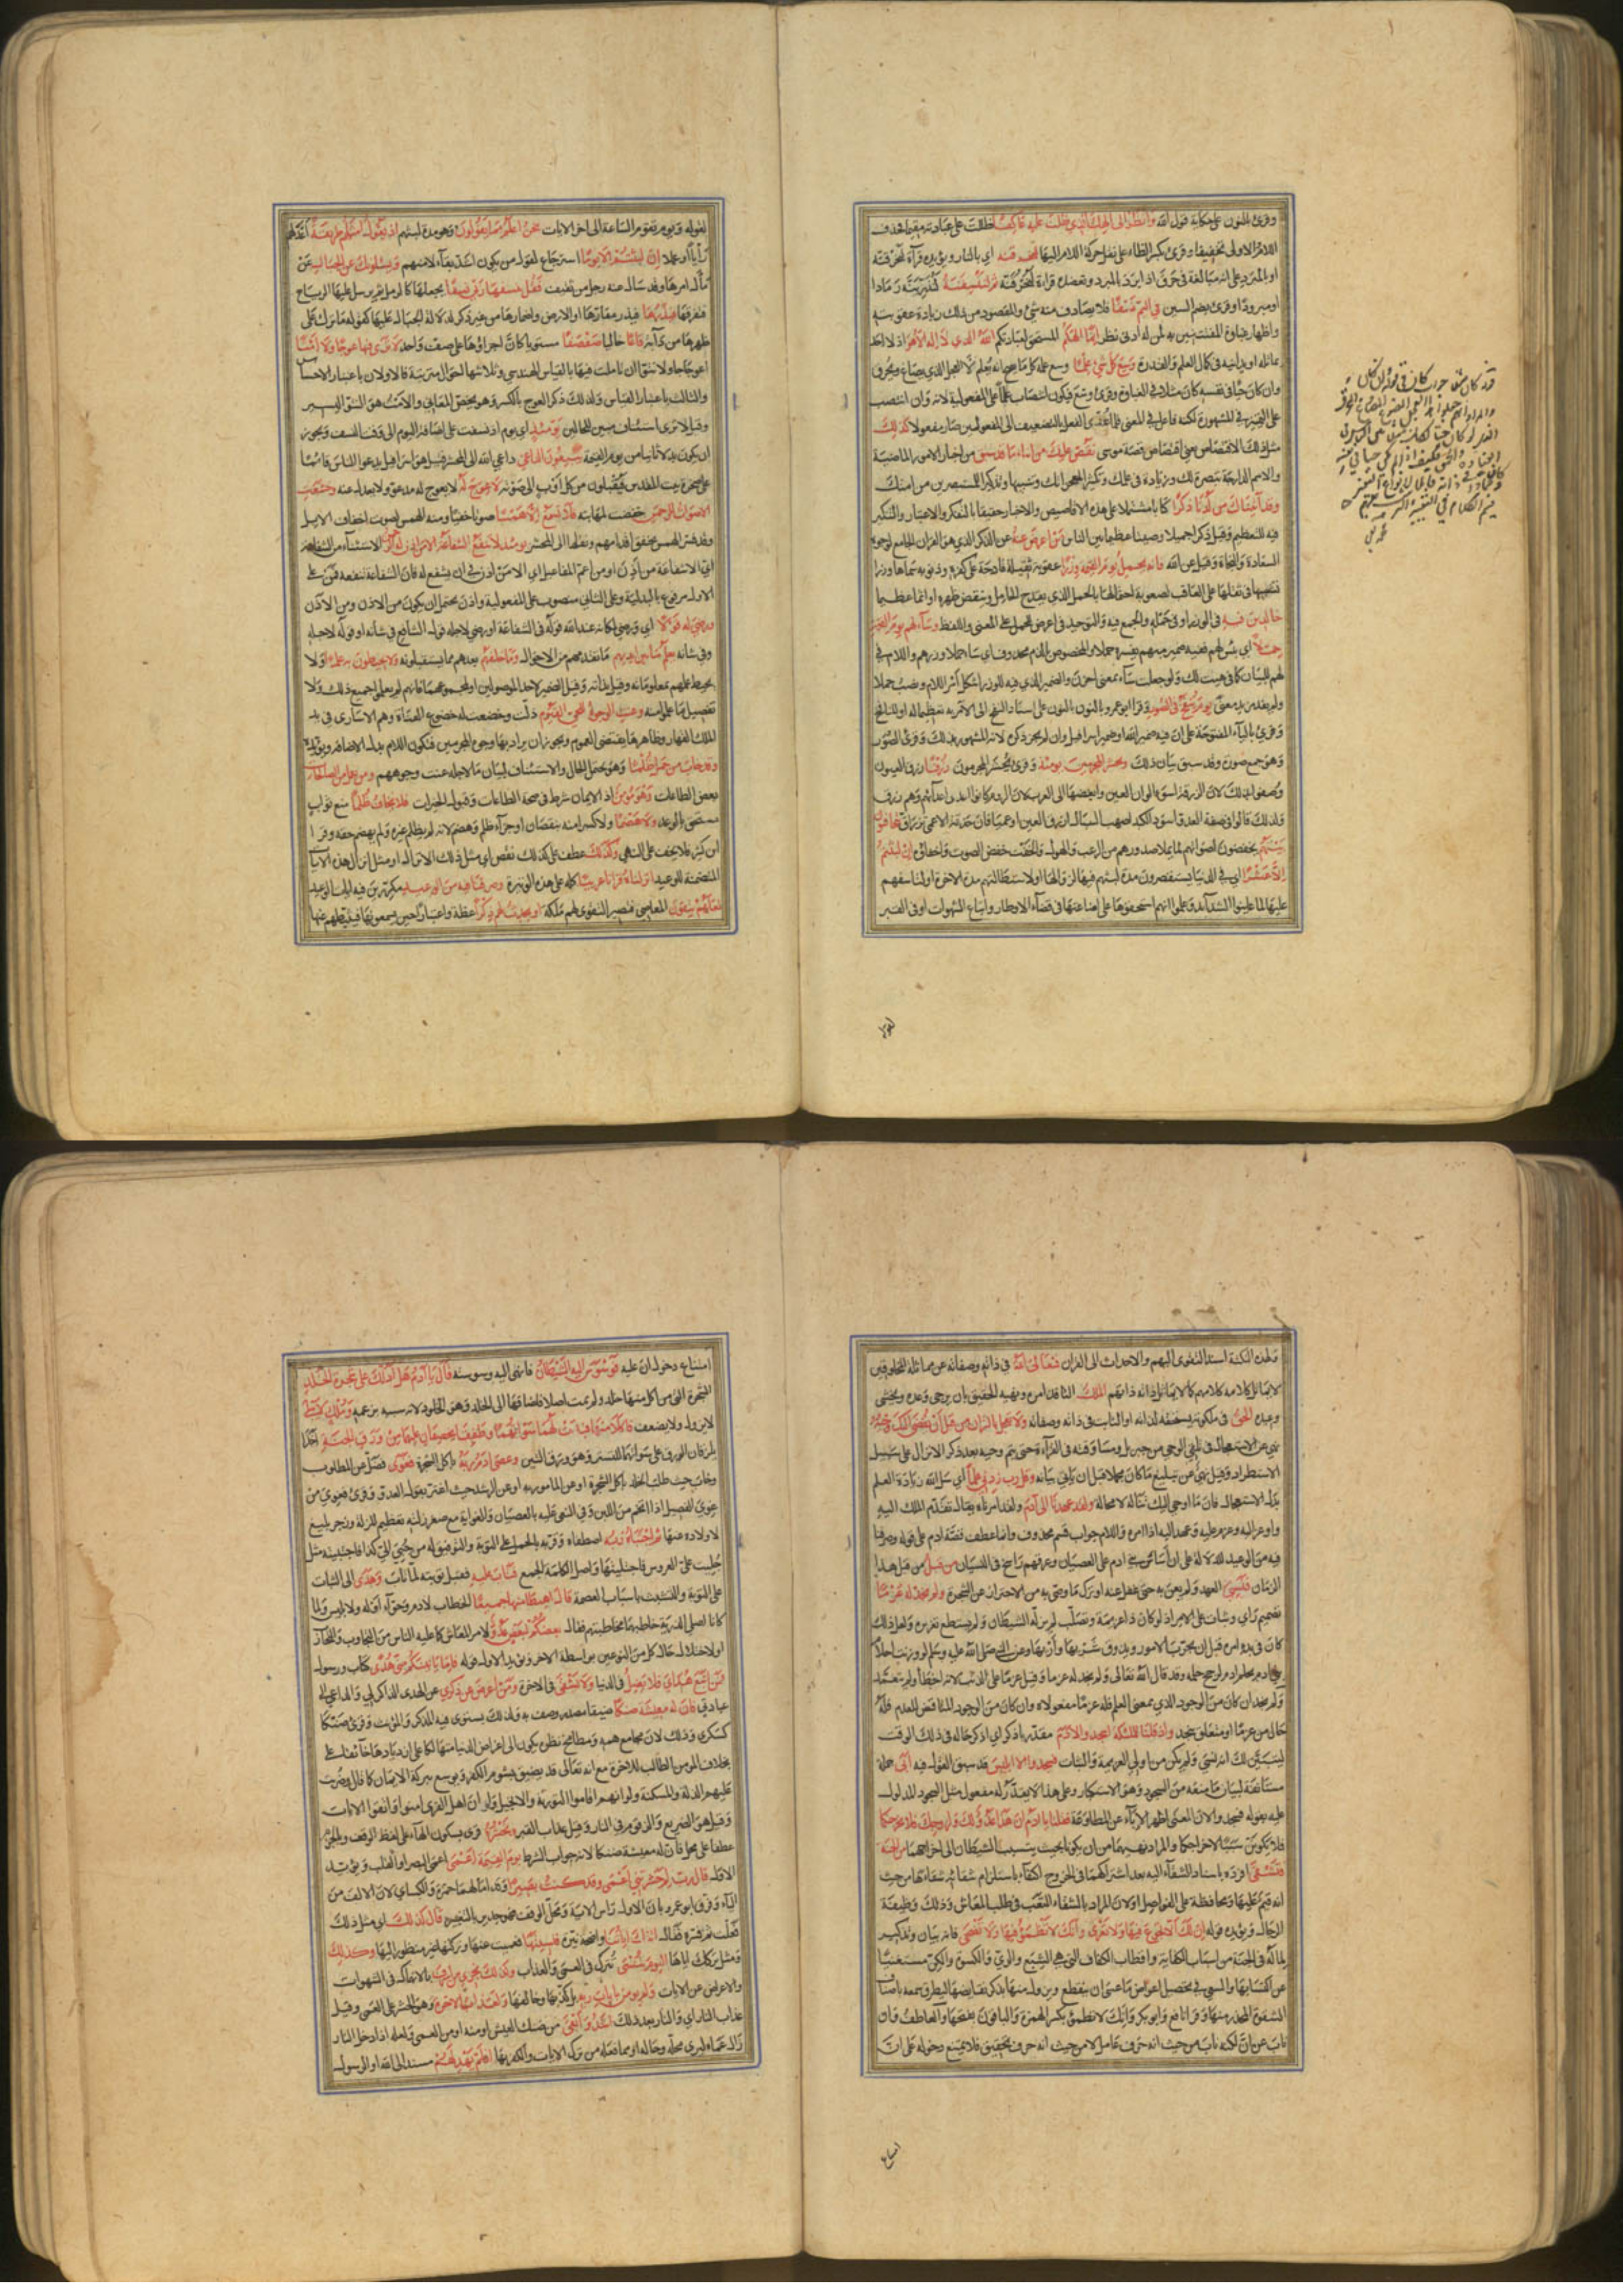 وقرئ بالنون على حكاية قول الله وانظر الى الهك الذي ظلت عليه عاكفا ظللت على عبادته مقيما فحذف
اللام الاولى تخفيفا وقرئ بكسر الظاء على نقل حركة اللام اليها لنحرقنه اي بالنار ويؤيده قراءة لنحرقنه
او بالمبرد على انه مبالغة في حرق اذا برد بالمبرد ويعضده قراءة لنحرقنه ثم لننسفنه لنذرينه رمادا
او مبرودا وقرئ بضم السين في اليم نسفا فلا يصادف منه شئ والمقصود من ذلك زيادة عقوبته
واظهار غباوة المفتتنين به لمن له ادنى نظر انما الهكم المستحق لعبادتكم الله الذي لا اله الا هو اذ لا احد
يماثله او يدانيه في كمال العلم والقدرة وسع كل شئ علما وسع علمه كل ما يصح ان يعلم لا العجل الذي يصاغ ويحرق
وان كان حيا في نفسه كان مثلا في الغباوة وقرئ وسع فيكون انتصاب علما على المفعولية لانه وان انتصب
على التمييز في المشهورة لكنه فاعل في المعنى فلما عدي الفعل بالتضعيف الى المفعولين صار مفعولا كذلك
مثل ذلك الاقتصاص يعني اقتصاص قصة موسى نقص عليك من انباء ما قد سبق من اخبار الامور الماضية
والامم الدارجة تبصرة لك وزيادة في علمك وتكثيرا لمعجزاتك وتنبيها وتذكيرا للمستبصرين من امتك
وقد آتيناك من لدنا ذكرا كتابا مشتملا على هذه الاقاصيص والاخبار حقيقا بالتفكر والاعتبار والتنكير
فيه للتعظيم وقيل ذكرا جميلا وصيتا عظيما بين الناس من اعرض عنه عن الذكر الذي هو القران الجامع لوجوه
السعادة والنجاة وقيل عن الله فانه يحمل يوم القيمة وزرا عقوبة ثقيلة فادحة على كفره وذنوبه سماها وزرا
تشبيها في ثقلها على المعاقب لصعوبة احتمالها بالحمل الذي يفدح الحامل وينقض ظهره او اثما عظيما
خالدين فيه في الوزر او في حمله والجمع فيه والتوحيد في اعرض للحمل على المعنى واللفظ وساء لهم يوم القيمة
حملا اي بئس لهم ففيه ضمير مبهم يفسره حملا والمخصوص بالذم محذوف اي ساء حملا وزرهم واللام في
لهم للبيان كما في هيت لك ولو جعلت ساء بمعنى احزن والضمير الذي فيه للوزر اشكل امر اللام ونصب حملا
ولم يفد مزيد معنى يوم ينفخ في الصور وقرا ابو عمرو بالنون على اسناد النفخ الى الآمر به تعظيما له او للنافخ
وقرئ بالياء المفتوحة على ان فيه ضمير الله او ضمير اسرافيل وان لم يجر ذكره لانه المشهور بذلك وقرئ الصور
وهو جمع صورة وقد سبق بيان ذلك ونحشر المجرمين يومئذ وقرئ يحشر المجرمون زرقا زرق العيون
وصفوا بذلك لان الزرقة اسوء الوان العين وابغضها الى العرب لان الروم كانوا اعدى اعدائهم وهم زرق
ولذلك قالوا في صفة العدو اسود الكبد اصهب السبال ازرق العين او عميا فان حدقة الاعمى تزراق يتخافتون
بينهم يخفضون اصواتهم لما يملا صدورهم من الرعب والهول والخفت خفض الصوت واخفاؤه ان لبثتم
الا عشرا اي في الدنيا يستقصرون مدة لبثهم فيها لزوالها او لاستطالتهم مدة الاخرة او لتاسفهم
عليها لما عاينوا الشدائد وعلموا انهم استحقوها على اضاعتها في قضاء الاوطار واتباع الشهوات او في القبر
لقوله
لقوله ويوم تقوم الساعة الى اخر الايات نحن اعلم بما يقولون وهو مدة لبثهم اذ يقول امثلهم طريقة اعدلهم
رأيا او عملا ان لبثتم الا يوما استرجاع لقول من يكون اشد تقالا منهم ويسئلونك عن الجبال عن
مآل امرها وقد سال عنه رجل من ثقيف فقل ينسفها ربي نسفا يجعلها كالرمل ثم يرسل عليها الرياح
فتفرقها فيذرها فيذر مقارها او الارض واضمارها من غير ذكر لدلالة الجبال عليها كقوله ما ترك على
ظهرها من دابة قاعا خاليا صفصفا مستويا كان اجزاؤها على صف واحد لا ترى فيها عوجا ولا امتا
اعوجاجا ولا نتوا ان تاملت فيها بالقياس الهندسي وثلاثتها احوال مترتبة فالاولان باعتبار الاحساس
والثالث باعتبار القياس ولذلك ذكر العوج بالكسر وهو يختص بالمعاني والامت هو النتو اليسير
وقيل لا ترى استئناف مبين للحالين يومئذ اي يوم اذ نسفت على اضافة اليوم الى وقت النسف ويجوز
ان يكون بدلا ثانيا من يوم القيمة يتبعون الداعي داعي الله الى المحشر قيل هو اسرافيل يدعوا الناس قائما
على صخرة بيت المقدس فيقبلون من كل اوب الى صوته لا عوج له لا يعوج له مدعو ولا يعدل عنه وخشعت
الاصوات للرحمن خفضت لمهابته فلا تسمع الا همسا صوتا خفيا ومنه الهمس لصوت اخفاف الابل
وقد فسر الهمس بخفق اقدامهم ونقلها الى المحشر يومئذ لا تنفع الشفاعة الا من اذن له الرحمن الاستثناء من الشفاعة
اي الا شفاعة من اذن او من اعم المفاعيل اي الا من اذن في ان يشفع له فان الشفاعة تنفعه فمن على
الاول مرفوع بالبدلية وعلى الثاني منصوب على المفعولية واذن يحتمل ان يكون من الاذن ومن الاذن
ورضي له قولا اي ورضي لمكانه عند الله قوله في الشفاعة او رضي لاجله قول الشافع في شانه او قوله لاجله
وفي شانه يعلم ما بين ايديهم ما تقدمهم من الاحوال وما خلفهم بعدهم مما يستقبلونه ولا يحيطون به علما ولا
يحيط علمهم بمعلوماته وقيل بذاته وقيل الضمير لاحد الموصولين او لمجموعهما فانهم لم يعلموا جميع ذلك ولا
تفصيل ما علموا منه وعنت الوجوه للحي القيوم ذلت وخضعت له خضوع العناة وهم الاسارى في يد
الملك القهار وظاهرها يقتضي العموم ويجوز ان يراد بها وجوه المجرمين فتكون اللام بدل الاضافة ويؤيده
وقد خاب من حمل ظلما وهو يحتمل الحال والاستئناف لبيان ما لاجله عنت وجوههم ومن يعمل من الصالحات
بعض الطاعات وهو مؤمن اذ الايمان شرط في صحة الطاعات وقبول الخيرات فلا يخاف ظلما منع ثواب
مستحق بالوعد ولا هضما ولا كسرا منه بنقصان او جزاء ظلم وهضم لانه لم يظلم غيره ولم يهضم حقه وقرا
ابن كثير فلا يخف على النهي وكذلك عطف على كذلك نقص اي مثل ذلك الانزال او مثل انزال هذه الايات
المتضمنة للوعيد انزلناه قرانا عربيا كله على هذه الوتيرة وصرفنا فيه من الوعيد مكررين فيه ايات الوعيد
لعلهم يتقون المعاصي فتصير التقوى لهم ملكة او يحدث لهم ذكرا عظة واعتبارا حين يسمعونها فيثبطهم عنها
ولهذه النكتة اسند التقوى اليهم والاحداث الى القران فتعالى الله في ذاته وصفاته عن مماثلة المخلوقين
لا يماثل كلامه كلامهم كما لا يماثل ذاته ذاتهم الملك النافذ امره ونهيه الحقيق بان يرجى وعده ويخشى
وعيده الحق في ملكوته يستحقه لذاته او الثابت في ذاته وصفاته ولا تعجل بالقران من قبل ان يقضى اليك وحيه
نهي عن الاستعجال في تلقي الوحي من جبريل ومساوقته في القراءة حتى يتم وحيه بعد ذكر الانزال على سبيل
الاستطراد وقيل نهي عن تبليغ ما كان مجملا قبل ان ياتي بيانه وقل رب زدني علما اي سل الله زيادة العلم
بدل الاستعجال فان ما اوحي اليك تناله لا محالة ولقد عهدنا الى آدم ولقد امرناه يقال تقدم الملك اليه
واوعز اليه وعزم عليه وعهد اليه اذا امره واللام جواب قسم محذوف وانما عطف قصة ادم على قوله وصرفنا
فيه من الوعيد للدلالة على ان اساس بني ادم على العصيان وعرقهم راسخ في النسيان من قبل من قبل هذا
الزمان فنسي العهد ولم يعن به حتى غفل عنه او ترك ما وصي به من الاحتراز عن الشجرة ولم نجد له عزما
تصميم راي وثبات على الامر اذ لو كان ذا عزيمة وتصلب لم يزله الشيطان ولم يستطع تغريره ولعل ذلك
كان في بدو امره قبل ان يجرب الامور ويذوق شريها واريها وعن النبي صلى الله عليه وسلم لو وزنت احلام
بني ادم بحلم ادم لرجح حلمه وقد قال الله تعالى ولم نجد له عزما وقيل عزما على الذنب لانه اخطا ولم يتعمد
ولم نجد ان كان من الوجود الذي بمعنى العلم فله عزما مفعولاه وان كان من الوجود المناقض للعدم فله
حال من عزما او متعلق بنجد واذ قلنا للملئكة اسجدوا لادم مقدر باذكر اي اذكر حاله في ذلك الوقت
ليتبين لك انه نسي ولم يكن من اولي العزيمة والثبات فسجدوا الا ابليس قد سبق القول فيه ابى جملة
مستانفة لبيان ما منعه من السجود وهو الاستكبار وعلى هذا لا يقدر له مفعول مثل السجود المدلول
عليه بقوله فسجدوا لان المعنى اظهر الاباء عن المطاوعة فقلنا يا ادم ان هذا عدو لك ولزوجك فلا يخرجنكما
فلا يكونن سببا لاخراجكما والمراد نهيهما من ان يكونا بحيث يتسبب الشيطان الى اخراجهما من الجنة
فتشقى افرده باسناد الشقاء اليه بعد اشتراكهما في الخروج اكتفاء باستلزام شقائه شقاءها من حيث
انه قيم عليها ومحافظة على الفواصل او لان المراد بالشقاء التعب في طلب المعاش وذلك وظيفة
الرجال ويؤيده قوله ان لك الا تجوع فيها ولا تعرى وانك لا تظمؤ فيها ولا تضحى فانه بيان وتذكير
لما له في الجنة من اسباب الكفاية واقطاب الكفاف التي هي الشبع والري والكسوة والكن مستغنيا
عن اكتسابها والسعي في تحصيل اعواض ما عسى ان ينقطع ويزول منها بذكر نقايضها ليطرق سمعه باصناف
الشقوة المحذر منها وقرا نافع وابو بكر وانك لا تظمؤ بكسر الهمزة والباقون بفتحها والعاطف وان
ناب عن ان لكنه ناب من حيث انه حرف عامل لا من حيث انه حرف تحقيق فلا يمتنع دخوله على ان
امتناع
امتناع دخول ان عليه فوسوس اليه الشيطان فانهى اليه وسوسته قال يا ادم هل ادلك على شجرة الخلد
الشجرة التي من اكل منها خلد ولم يمت اصلا فاضافها الى الخلد وهو الخلود لانه سببه بزعمه وملك لا يبلى
لا يزول ولا يضعف فاكلا منها فبدت لهما سواتهما وطفقا يخصفان عليهما من ورق الجنة اخذا
يلزقان الورق على سواتهما للتستر وهو ورق التين وعصى ادم ربه باكل الشجرة فغوى فضل عن المطلوب
وخاب حيث طلب الخلد باكل الشجرة او عن المامور به او عن الرشد حيث اغتر بقول العدو وقرئ فغوي من
غوي الفصيل اذا اتخم من اللبن وفي النعي عليه بالعصيان والغواية مع صغر زلته تعظيم للزلة وزجر بليغ
لاولاده عنها ثم اجتباه ربه اصطفاه وقربه بالحمل على التوبة والتوفيق له من جبي الي كذا فاجتبيته مثل
جليت علي العروس فاجتليتها واصل الكلمة الجمع فتاب عليه فقبل توبته لما تاب وهدى الى الثبات
على التوبة والتشبث باسباب العصمة قال اهبطا منها جميعا الخطاب لادم وحواء او له ولابليس ولما
كانا اصلي الذرية خاطبهما مخاطبتهم فقال بعضكم لبعض عدو لامر المعاش كما عليه الناس من التجاذب والتحارب
او لاختلال حال كل من النوعين بواسطة الاخر ويؤيد الاول قوله فاما ياتينكم مني هدى كتاب ورسول
فمن اتبع هداي فلا يضل في الدنيا ولا يشقى في الاخرة ومن اعرض عن ذكري عن الهدى الذاكر لي والداعي الى
عبادتي فان له معيشة ضنكا ضيقا مصدر وصف به ولذلك يستوي فيه المذكر والمؤنث وقرئ ضنكى
كسكرى وذلك لان مجامع همه ومطامح نظره يكون الى اعراض الدنيا متهالكا على ازديادها خائفا على
بخلاف المؤمن الطالب للاخرة مع انه تعالى قد يضيق بشوم الكفر ويوسع ببركة الايمان كما قال وضربت
عليهم الذلة والمسكنة ولو انهم اقاموا التورية والانجيل ولو ان اهل القرى امنوا واتقوا الايات
وقيل هو الضريع والزقوم في النار وقيل عذاب القبر ونحشره قرئ بسكون الهاء على لفظ الوقف وبالجزم
عطفا على محل فان له معيشة ضنكا لانه جواب الشرط يوم القيمة اعمى اعمى البصر او القلب ويؤيد
الاول قال رب لم حشرتني اعمى وقد كنت بصيرا وقد امالهما حمزة والكسائي لان الالف من
الياء وفرق ابو عمرو بان الاول راس الاية ومحل الوقف فهو جدير بالتغيير قال كذلك اي مثل ذلك
فعلت ثم فسره فقال اتتك اياتنا واضحة نيرة فنسيتها فعميت عنها وتركتها غير منظور اليها وكذلك
ومثل تركك اياها اليوم تنسى تترك في العمى والعذاب وكذلك نجزي من اسرف بالانهماك في الشهوات
والاعراض عن الايات ولم يؤمن بايات ربه بل كذب بها وخالفها ولعذاب الاخرة وهو الحشر على العمى وقيل
عذاب النار اي والنار بعد ذلك اشد وابقى من ضنك العيش او منه او من العمى ولعله اذا دخل النار
زال عماه ليرى محله وحاله او مما فعله من ترك الايات والكفر بها افلم يهد لهم مسند الى الله او الرسول